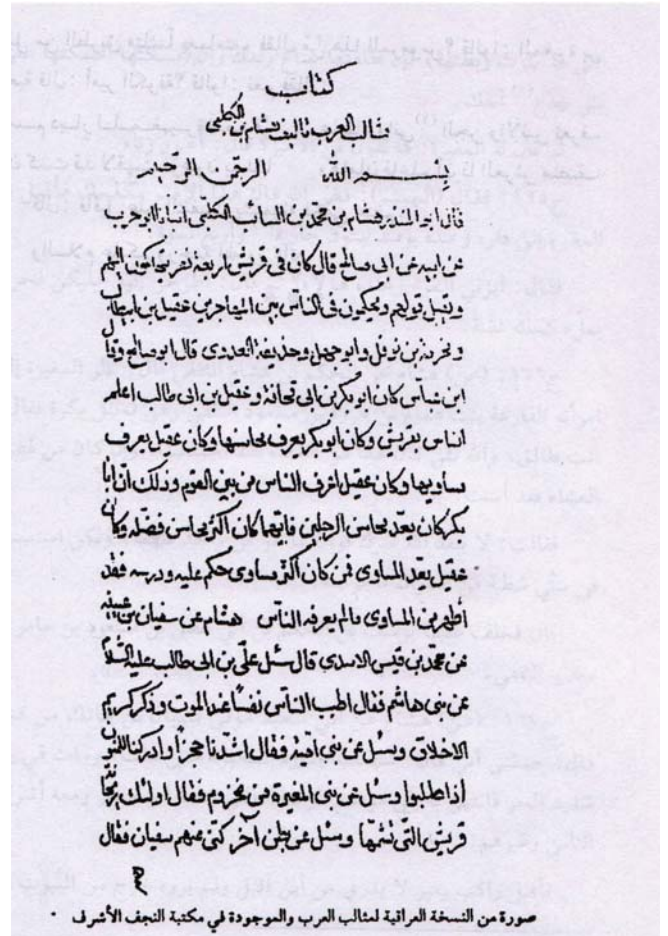 كتاب
مثالب العرب تاليف هشام بن الكلبى
بسم الله الرحمن الرحيم
قال ابو المنذر هشام بن محمد بن السائب الكلبى ابو
عن ابيه عن ابى صالح قال كان فى قريش اربعة نفر يتحاكمون اليهم
ويقبل قولهم ويحكمون فى الناس بين المتفاخرين عقيل بن ابيطالب
ومخرمة بن نوفل وابو جهل وحذيفة العدوى قال ابو صالح وقال
ابن عباس كان ابو بكر بن ابى قحافة وعقيل بن ابى طالب اعلم
الناس بقريش وكان ابو بكر يعرف محاسنها وكان عقيل يعرف
مساويها وكان عقيل اعرف الناس من بين القوم وذلك ان ابا
بكر كان يعد محاسن الرجلين فايهما كان اكثر محاسن فضله وكان
عقيل يعد المساوى فمن كان اكثر مساوى حكم عليه فقد
اظهر من المساوى مالم يعرفه الناس هشام عن سفيان بن عيينه
عن محمد بن قيس الاسدى قال سئل على بن ابى طالب عليه السلام
عن بنى هاشم فقال اطيب الناس نفسا عند الموت وذكر كريم
الاخلاق وسئل عن بنى اميه فقال اشدنا حجزا وادركنا
اذا طلبوا وسئل عن بنى المغيرة من مخزوم فقال اولئك ريحانة
قريش التى نشمها وسئل عن بطن آخر كنى عنهم سفيان فقال
صورة من النسخة العراقية لمثالب العرب والموجودة في مكتبة النجف الأشرف